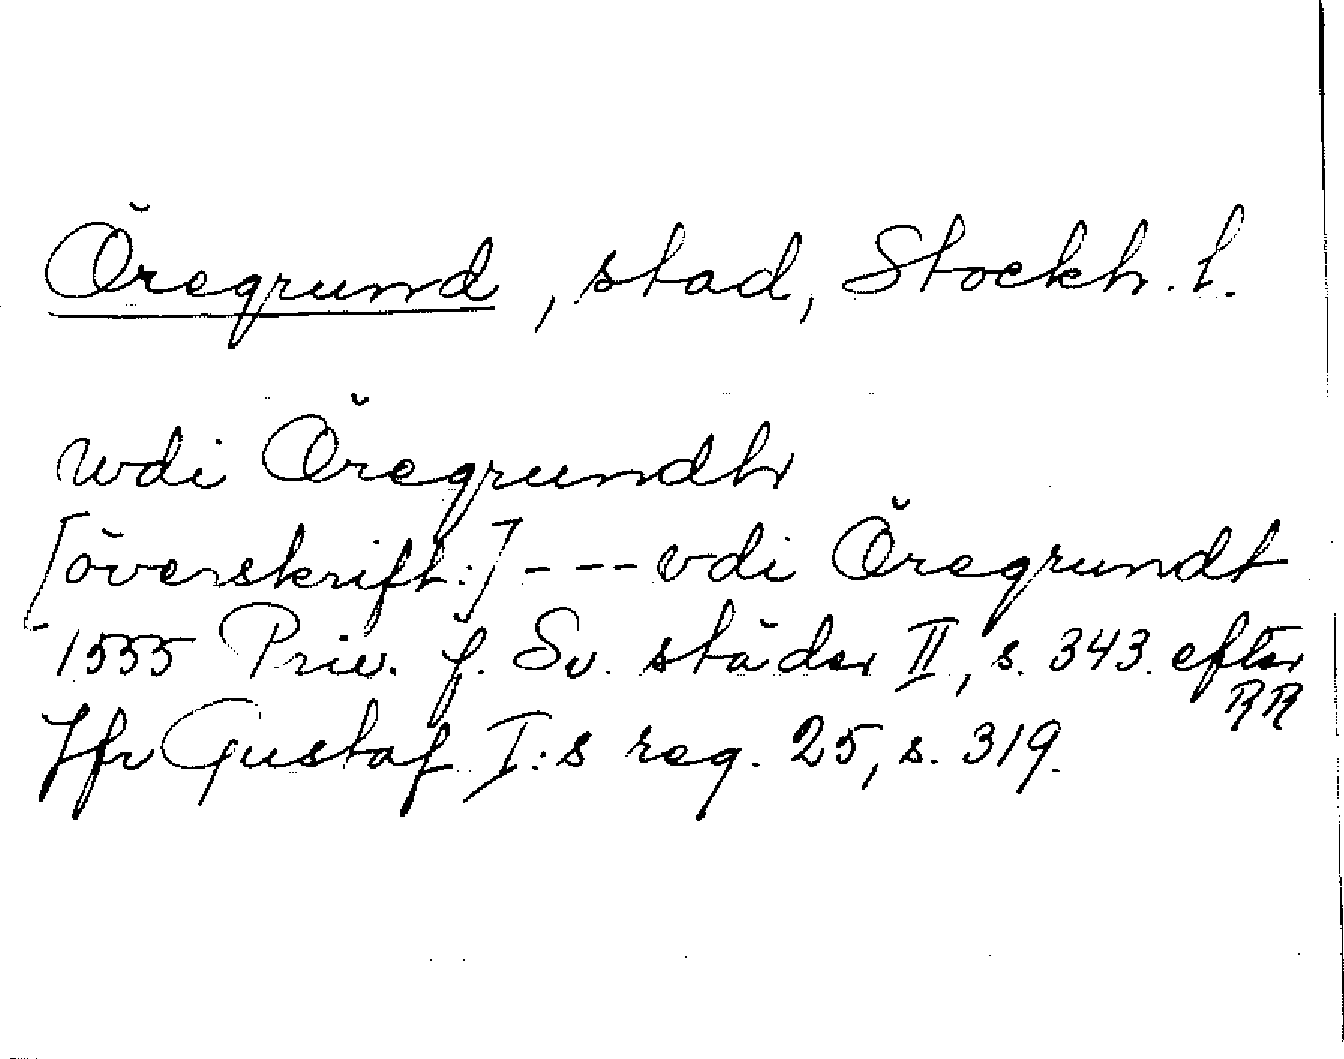 Öregrund, stad, Stockh. l.
wdi Öregrundh
[överskrift:] --- vdi Öregrundt
1555 Priv. f. Sv. städer II, s. 343 efter
RR
Jfr Gustaf I:s reg. 25, s. 319.